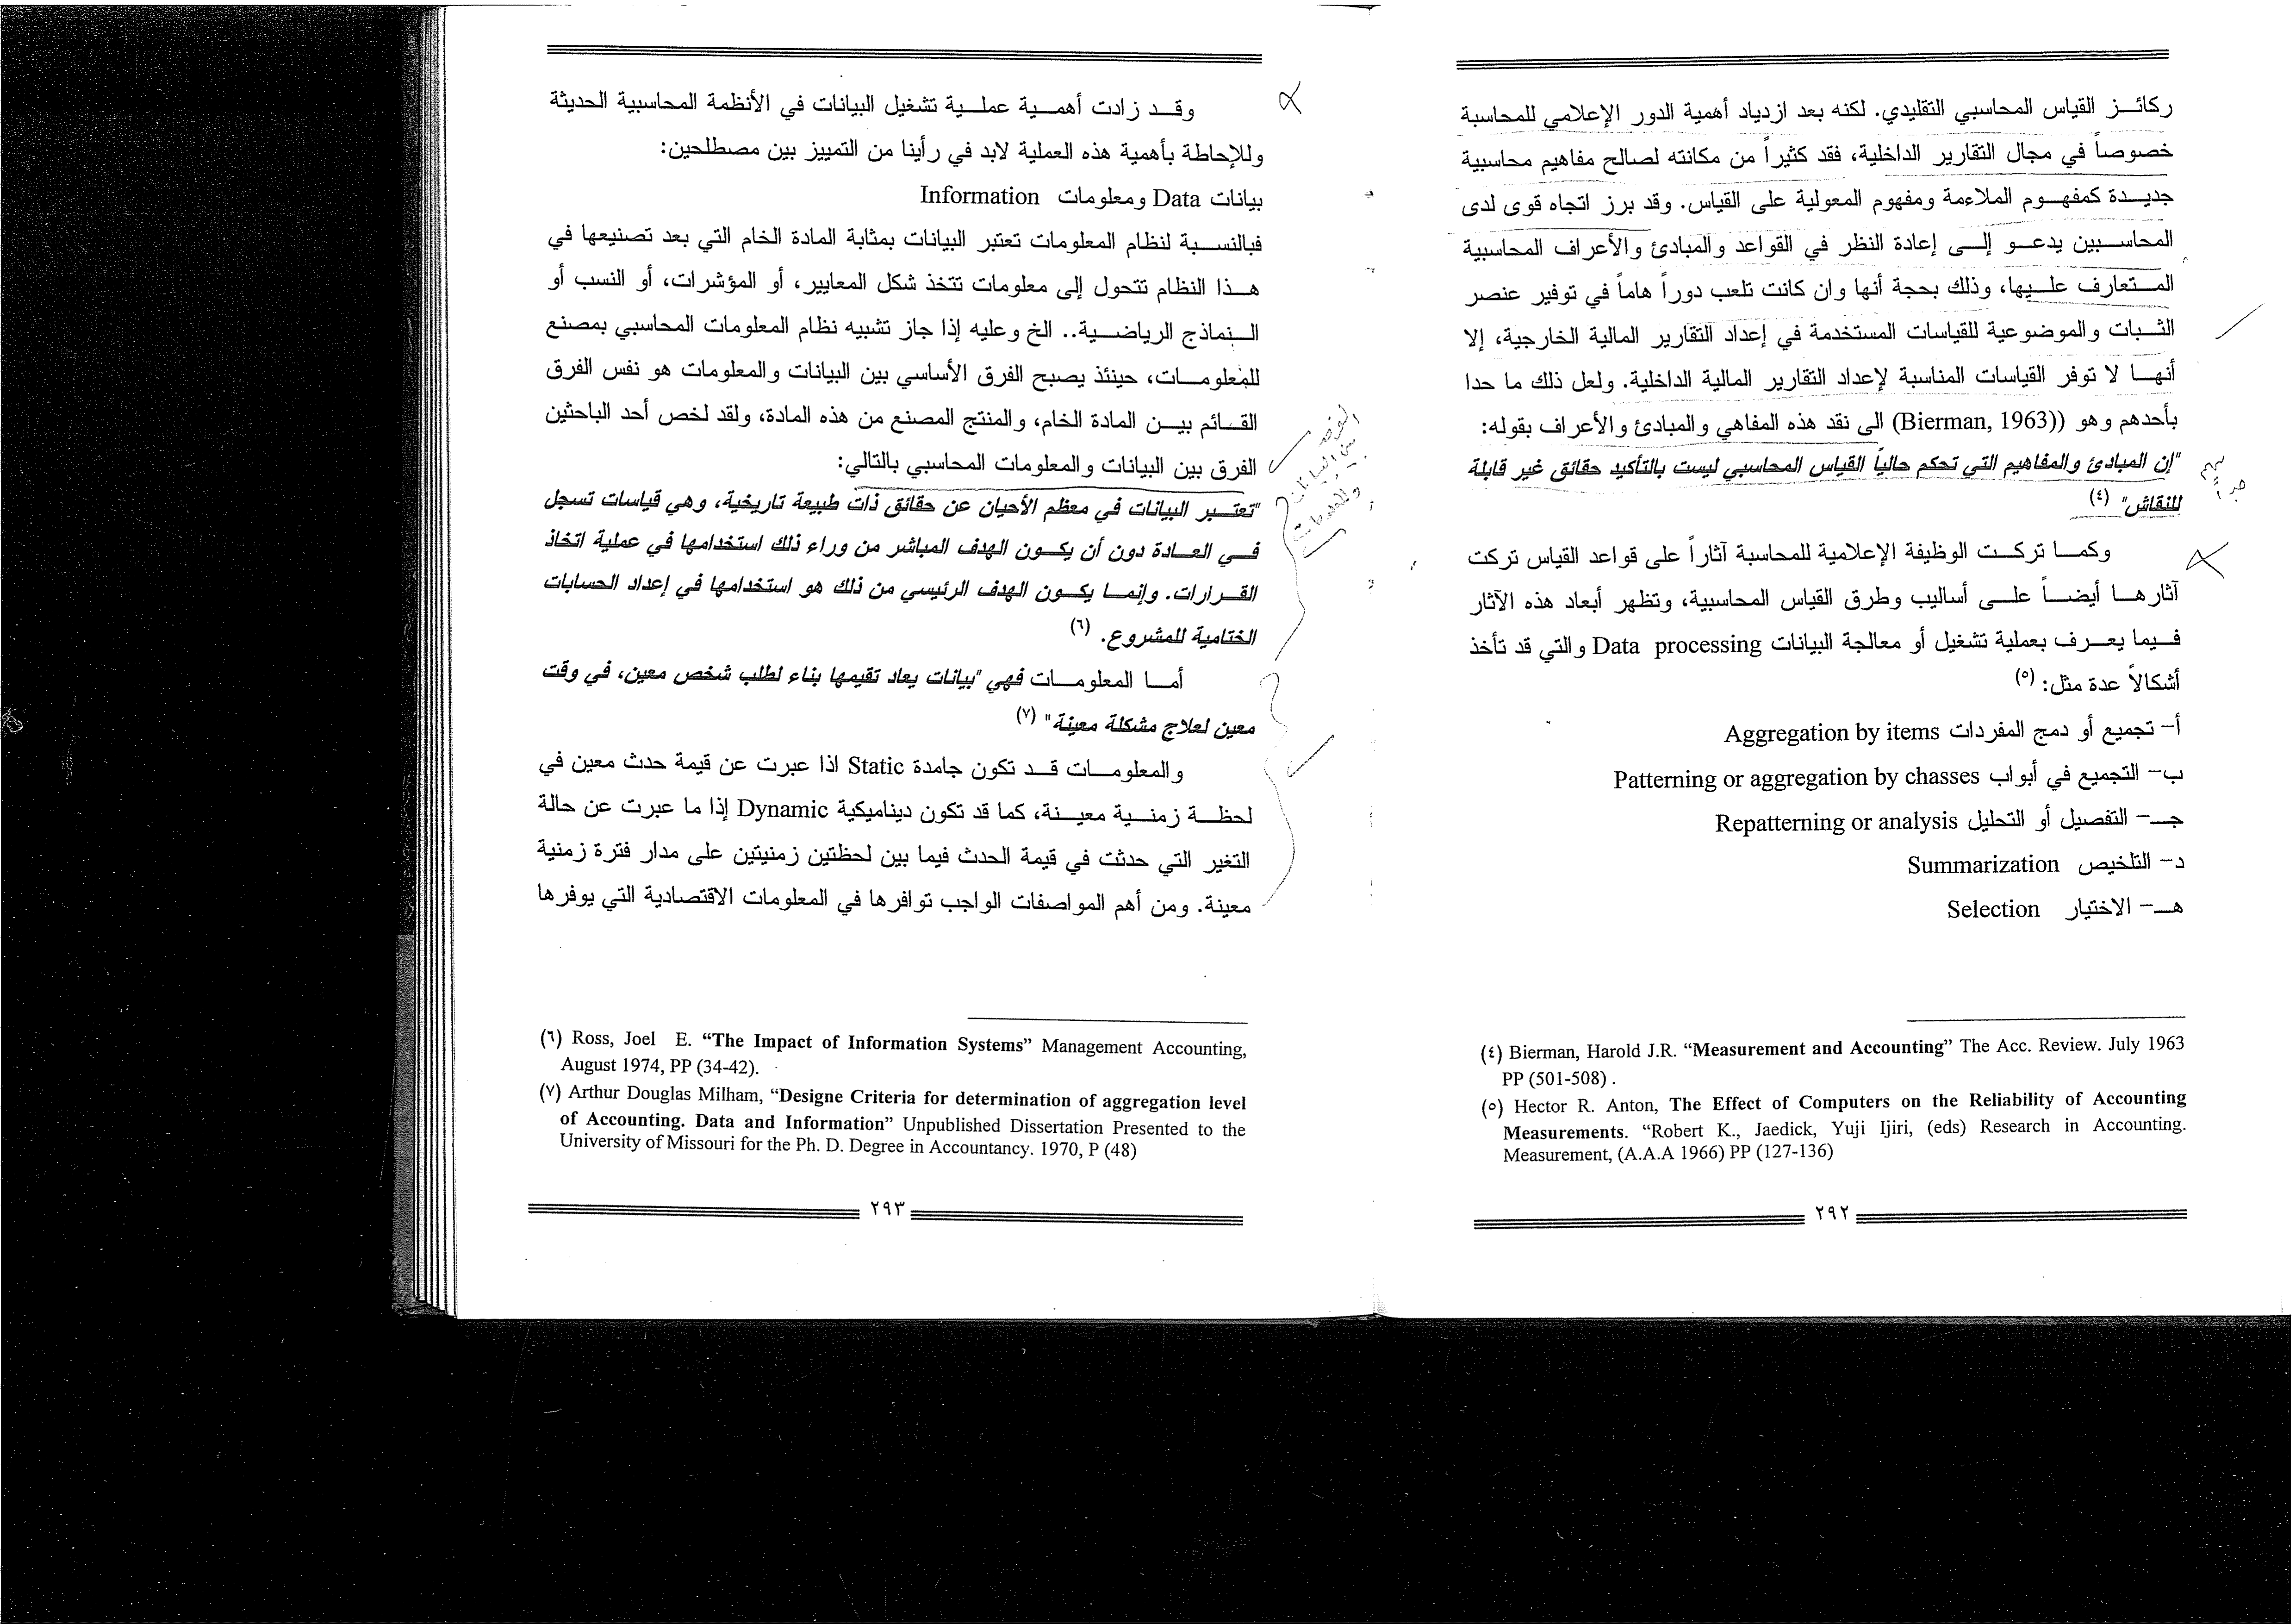 ركائز القياس المحاسبي التقليدي. لكنه بعد ازدياد أهمية الدور الإعلامي للمحاسبة
خصوصاً في مجال التقارير الداخلية، فقد كثيراً من مكانته لصالح مفاهيم محاسبية
جديدة كمفهوم الملاءمة ومفهوم المعولية على القياس. وقد برز اتجاه قوى لدى
المحاسبين يدعو إلى إعادة النظر في القواعد والمبادئ والأعراف المحاسبية
المتعارف عليها، وذلك بحجة أنها وان كانت تلعب دوراً هاماً في توفير عنصر
الثبات والموضوعية للقياسات المستخدمة في إعداد التقارير المالية الخارجية، إلا
أنها لا توفر القياسات المناسبة لإعداد التقارير المالية الداخلية. ولعل ذلك ما حدا
بأحدهم وهو ((Bierman, 1963) الى نقد هذه المفاهي والمبادئ والأعراف بقوله:
"إن المبادئ والمفاهيم التي تحكم حالياً القياس المحاسبي ليست بالتأكيد حقائق غير قابلة
للنقاش" (٤)
مهم
جداً
وكما تركت الوظيفة الإعلامية للمحاسبة آثاراً على قواعد القياس تركت
آثارها أيضاً على أساليب وطرق القياس المحاسبية، وتظهر أبعاد هذه الآثار
فيما يعرف بعملية تشغيل أو معالجة البيانات Data processing والتي قد تأخذ
أشكالاً عدة مثل: (٥)
أ- تجميع أو دمج المفردات Aggregation by items
ب- التجميع في أبواب Patterning or aggregation by chasses
جـ- التفصيل أو التحليل Repatterning or analysis
د- التلخيص Summarization
هـ- الاختيار Selection
(٤) Bierman, Harold J.R. “Measurement and Accounting” The Acc. Review. July 1963
PP (501-508) .
(٥) Hector R. Anton, The Effect of Computers on the Reliability of Accounting
Measurements. “Robert K., Jaedick, Yuji Ijiri, (eds) Research in Accounting.
Measurement, (A.A.A 1966) PP (127-136)
٢٩٢
وقد زادت أهمية عملية تشغيل البيانات في الأنظمة المحاسبية الحديثة
وللإحاطة بأهمية هذه العملية لابد في رأينا من التمييز بين مصطلحين:
بيانات Data ومعلومات Information
فبالنسبة لنظام المعلومات تعتبر البيانات بمثابة المادة الخام التي بعد تصنيعها في
هذا النظام تتحول إلى معلومات تتخذ شكل المعايير، أو المؤشرات، أو النسب أو
النماذج الرياضية.. الخ وعليه إذا جاز تشبيه نظام المعلومات المحاسبي بمصنع
للمعلومات، حينئذ يصبح الفرق الأساسي بين البيانات والمعلومات هو نفس الفرق
القائم بين المادة الخام، والمنتج المصنع من هذه المادة، ولقد لخص أحد الباحثين
الفرق بين البيانات والمعلومات المحاسبي بالتالي:
الفرق
بين البيانات
والمعلومات
"تعتبر البيانات في معظم الأحيان عن حقائق ذات طبيعة تاريخية، وهي قياسات تسجل
في العادة دون أن يكون الهدف المباشر من وراء ذلك استخدامها في عملية اتخاذ
القرارات. وإنما يكون الهدف الرئيسي من ذلك هو استخدامها في إعداد الحسابات
الختامية للمشروع. (٦)
أما المعلومات فهي "بيانات يعاد تقيمها بناء لطلب شخص معين، في وقت
معين لعلاج مشكلة معينة" (٧)
والمعلومات قد تكون جامدة Static اذا عبرت عن قيمة حدث معين في
لحظة زمنية معينة، كما قد تكون ديناميكية Dynamic إذا ما عبرت عن حالة
التغير التي حدثت في قيمة الحدث فيما بين لحظتين زمنيتين على مدار فترة زمنية
معينة. ومن أهم المواصفات الواجب توافرها في المعلومات الاقتصادية التي يوفرها
(٦) Ross, Joel E. “The Impact of Information Systems” Management Accounting,
August 1974, PP (34-42).
(٧) Arthur Douglas Milham, “Designe Criteria for determination of aggregation level
of Accounting. Data and Information” Unpublished Dissertation Presented to the
University of Missouri for the Ph. D. Degree in Accountancy. 1970, P (48)
٢٩٣